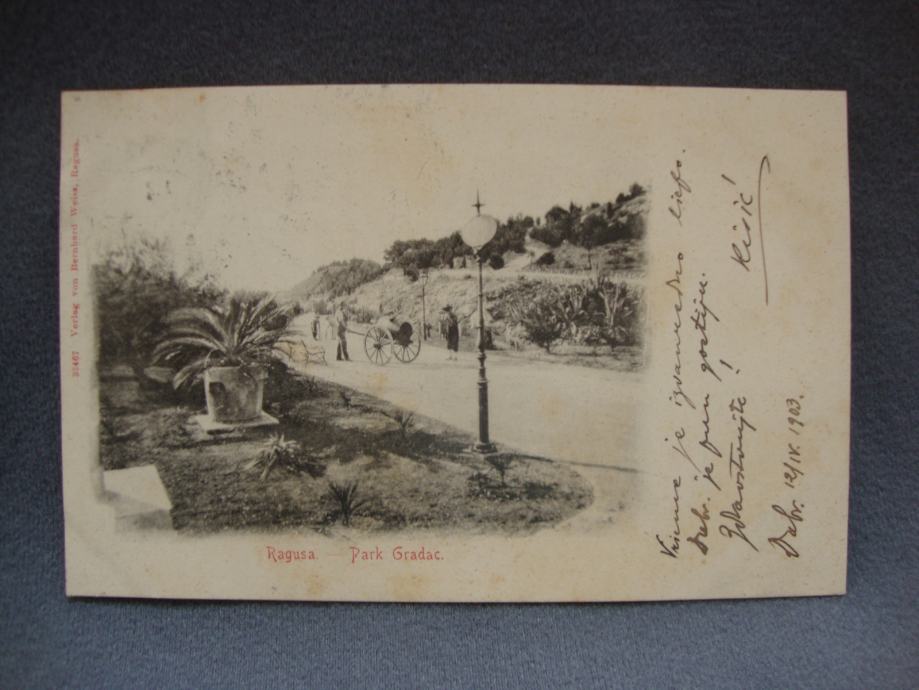 Vrieme je izvanredno liepo.
Dubr. je pun gostiju.
Zdravstvujte!
Kisić!
Dubr. 12/IV 1903.
Ragusa. — Park Gradac.
32467 Verlag von Bernhard Weiss, Ragusa.